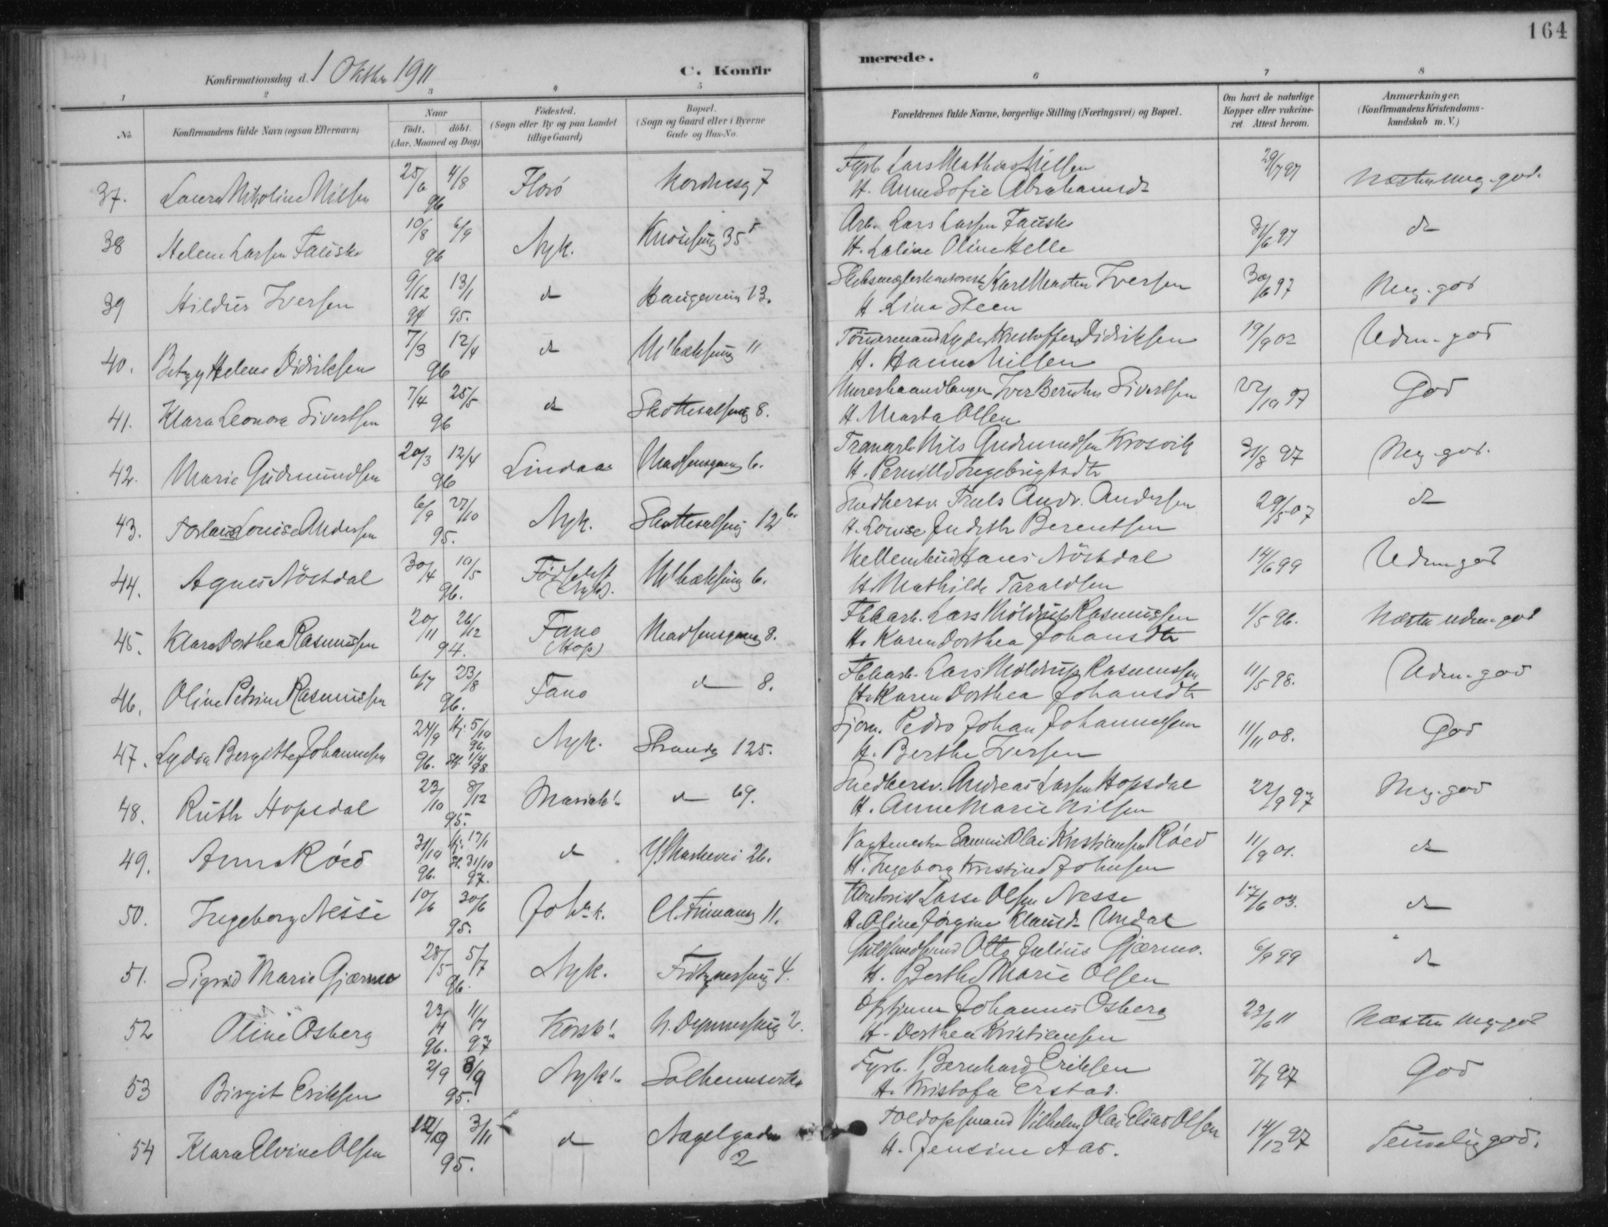 164
Konfirmationsdag d. 1 Oktbr 1911
C. Konfir
merede.
1 2 3 4 5 6 7 8
No.
Konfirmandens fulde Navn (ogsaa Efternavn)
Naar
født. døbt.
(Aar, Maaned og Dag)
Fødested.
(Sogn eller By og paa Landet
tillige Gaard)
Bopæl.
(Sogn og Gaard eller i Byerne
Gade og Hus-No.
Forældrenes fulde Navne, borgerlige Stilling (Næringsvei) og Bopæl.
Om havt de naturlige
Kopper eller vaksine-
ret. Attest herom.
Anmærkninger.
(Konfirmandens Kristendoms-
kundskab m. V.)
37. Laura Nikoline Nilsen 25/6 4/8 96 Florö Nordnesg 7 Fyrb. Lars Mathias Nilsen 29/7 97 Næsten meg. god.
H. Anne Sofie Abrahamsdt
38 Helene Larsen Fauske 10/8 6/9 96 Nyk. 35 Arb. Lars Larsen Fauske 97 do
H. Laline Oline Helle
39 Hildur Iversen 9/12 94 13/1 95. do Haugeveien 13. Karl Martin Iversen 30/6 97 Meg. god
H. Lina Steen
40. Betzy Helene Didriksen 7/3 12/4 96 do 11 Kristoffer Didriksen 19/9 02 Udm. god
H. Hanna Nilsen
41. Klara Leonora Sivertsen 7/4 25/5 96 do Skottesalsmg 8. Murerhaandlanger Iver Sivertsen 97 God
H. Marta Olsen
42. Marie Gudmundsen 20/3 12/4 96 Lindaas Madsensgang 6. Tranarb. Nils Gudmundsen Krosvik 31/8 97 Meg. god.
H. Pernille Ingebrigtsdtr
43. Louise Andersen 6/9 27/10 95. Nyk. Skottesalsmg 12 b. Snedkersv. Truls Andr. Andersen 07 do
H. Louise Berentsen
44. Agnes Nöstdal 30/4 10/5 96. Födselsst (Nyk). 6. Hans Nöstdal 14/6 99 Udm god
H. Mathilde Taraldsen
45. Klara Dorthea Rasmussen 20/11 26/12 94. Fane (Hop) Madsensgang 8. Lars Möldrup Rasmussen 1/5 96. Næsten udm. god
H. Karen Dorthea Johansdtr
46. Oline Petrine Rasmussen 6/7 23/8 96. Fane do 8. Lars Möldrup Rasmussen 11/5 98. Udm. god
H. Karen Dorthea Johansdtr
47. Lydia Bergitte Johannesen 24/9 96. 5/10 96 98 Nyk. Strandg 125. Pedro Johan Johannesen 11/11 08. God
H. Berthe Iversen
48. Ruth Hopsdal 23/10 8/12 95. Mariak. do 69. Snedkersv. Andreas Larsen Hopsdal 22/9 97 Meg. god
H. Anne Marie Nilsen
49. Anna Röed 31/10 96. 17/1 31/10 97. do Y. Markevei 26. Olai Kristiansen Röed 11/9 01. do
H. Ingeborg Kristine Johnsen
50. Ingeborg Nesse 10/6 30/6 95. Johs. k. Cl. Frimansg 11. Kontorist Lasse Olsen Nesse 17/6 03. do
H. Oline Jörgine Klausdtr Undal
51. Sigrid Marie Gjærmo 28/5 5/7 96. Nyk. 4. Guldsmedsvend Otto Julius Gjærmo. 6/9 99 do
H. Berthe Marie Olsen
52 Oline Osberg 96. 11/7 97 Korsk. 2. Johannes Osberg 23/6 11 Næsten meg. god
H. Dorthea Kristiansen
53 Birgit Eriksen 2/9 8/9 95. Nyk. Fyrb. Bernhard Eriksen 7/7 97 God
H. Kristofa Erstad.
54 Klara Elvine Olsen 3/11 95. do Nagelgaden 2 Toldopsmand Vilhelm Olai Elias Olsen 14/12 97 Temmelig god.
H. Jensine Aas.